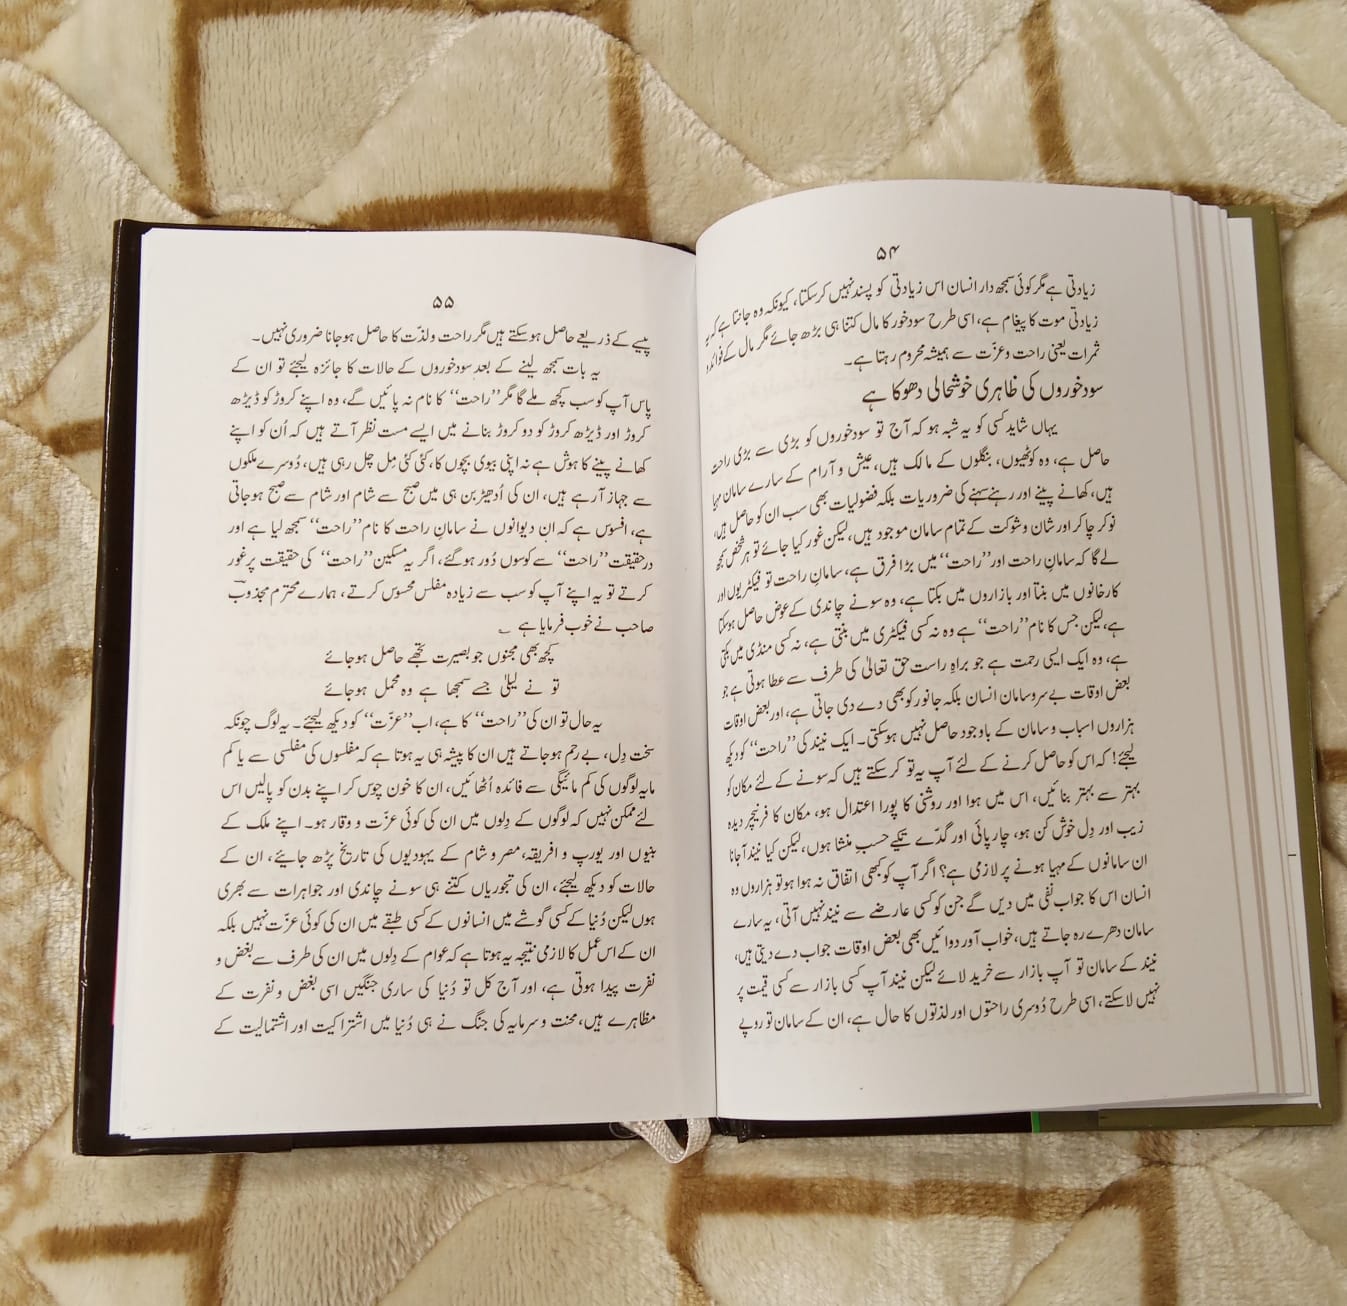 ۵۴
زیادتی ہے مگر کوئی سمجھ دار انسان اس زیادتی کو پسند نہیں کرسکتا، کیونکہ وہ جانتا ہے کہ یہ
زیادتی موت کا پیغام ہے، اسی طرح سودخور کا مال کتنا ہی بڑھ جائے مگر مال کے فوائد و
ثمرات یعنی راحت وعزّت سے ہمیشہ محروم رہتا ہے۔
سودخوروں کی ظاہری خوشحالی دھوکا ہے
یہاں شاید کسی کو یہ شبہ ہو کہ آج تو سودخوروں کو بڑی سے بڑی راحت
حاصل ہے، وہ کوٹھیوں، بنگلوں کے مالک ہیں، عیش و آرام کے سارے سامان مہیا
ہیں، کھانے پینے اور رہنے سہنے کی ضروریات بلکہ فضولیات بھی سب ان کو حاصل ہیں،
نوکر چاکر اور شان وشوکت کے تمام سامان موجود ہیں، لیکن غور کیا جائے تو ہر شخص سمجھ
لے گا کہ سامانِ راحت اور ’’راحت‘‘ میں بڑا فرق ہے، سامانِ راحت تو فیکٹریوں اور
کارخانوں میں بنتا اور بازاروں میں بکتا ہے، وہ سونے چاندی کے عوض حاصل ہوسکتا
ہے، لیکن جس کا نام ’’راحت‘‘ ہے وہ نہ کسی فیکٹری میں بنتی ہے، نہ کسی منڈی میں بکتی
ہے، وہ ایک ایسی رحمت ہے جو براہِ راست حق تعالیٰ کی طرف سے عطا ہوتی ہے جو
بعض اوقات بے سروسامان انسان بلکہ جانور کو بھی دے دی جاتی ہے، اور بعض اوقات
ہزاروں اسباب وسامان کے باوجود حاصل نہیں ہوسکتی۔ ایک نیند کی ’’راحت‘‘ کو دیکھ
لیجئے! کہ اس کو حاصل کرنے کے لئے آپ یہ تو کرسکتے ہیں کہ سونے کے لئے مکان کو
بہتر سے بہتر بنائیں، اس میں ہوا اور روشنی کا پورا اعتدال ہو، مکان کا فرنیچر دیدہ
زیب اور دِل خوش کن ہو، چارپائی اور گدّے تکیے حسبِ منشا ہوں، لیکن کیا نیند آجانا
ان سامانوں کے مہیا ہونے پر لازمی ہے؟ اگر آپ کو کبھی اتفاق نہ ہوا ہو تو ہزاروں وہ
انسان اس کا جواب نفی میں دیں گے جن کو کسی عارضے سے نیند نہیں آتی، یہ سارے
سامان دھرے رہ جاتے ہیں، خواب آور دوائیں بھی بعض اوقات جواب دے دیتی ہیں،
نیند کے سامان تو آپ بازار سے خرید لائے لیکن نیند آپ کسی بازار سے کسی قیمت پر
نہیں لاسکتے، اسی طرح دُوسری راحتوں اور لذتوں کا حال ہے، ان کے سامان تو روپے
۵۵
پیسے کے ذریعے حاصل ہوسکتے ہیں مگر راحت ولذّت کا حاصل ہوجانا ضروری نہیں۔
یہ بات سمجھ لینے کے بعد سودخوروں کے حالات کا جائزہ لیجئے تو ان کے
پاس آپ کو سب کچھ ملے گا مگر ’’راحت‘‘ کا نام نہ پائیں گے، وہ اپنے کروڑ کو ڈیڑھ
کروڑ اور ڈیڑھ کروڑ کو دو کروڑ بنانے میں ایسے مست نظر آتے ہیں کہ اُن کو اپنے
کھانے پینے کا ہوش ہے نہ اپنی بیوی بچوں کا، کئی کئی مِل چل رہی ہیں، دُوسرے ملکوں
سے جہاز آرہے ہیں، ان کی اُدھیڑبن ہی میں صبح سے شام اور شام سے صبح ہوجاتی
ہے، افسوس ہے کہ ان دیوانوں نے سامانِ راحت کا نام ’’راحت‘‘ سمجھ لیا ہے اور
درحقیقت ’’راحت‘‘ سے کوسوں دُور ہوگئے، اگر یہ مسکین ’’راحت‘‘ کی حقیقت پر غور
کرتے تو یہ اپنے آپ کو سب سے زیادہ مفلس محسوس کرتے، ہمارے محترم مجذوبؔ
صاحب نے خوب فرمایا ہے ؎
کچھ بھی مجنوں جو بصیرت تجھے حاصل ہوجائے
تو نے لیلیٰ جسے سمجھا ہے وہ محمل ہوجائے
یہ حال تو ان کی ’’راحت‘‘ کا ہے، اب ’’عزّت‘‘ کو دیکھ لیجئے۔ یہ لوگ چونکہ
سخت دِل، بے رحم ہوجاتے ہیں ان کا پیشہ ہی یہ ہوتا ہے کہ مفلسوں کی مفلسی سے یا کم
مایہ لوگوں کی کم مائیگی سے فائدہ اُٹھائیں، ان کا خون چوس کر اپنے بدن کو پالیں اس
لئے ممکن نہیں کہ لوگوں کے دِلوں میں ان کی کوئی عزّت و وقار ہو۔ اپنے ملک کے
بنیوں اور یورپ و افریقہ، مصر وشام کے یہودیوں کی تاریخ پڑھ جایئے، ان کے
حالات کو دیکھ لیجئے، ان کی تجوریاں کتنے ہی سونے چاندی اور جواہرات سے بھری
ہوں لیکن دُنیا کے کسی گوشے میں انسانوں کے کسی طبقے میں ان کی کوئی عزّت نہیں بلکہ
ان کے اس عمل کا لازمی نتیجہ یہ ہوتا ہے کہ عوام کے دِلوں میں ان کی طرف سے بغض و
نفرت پیدا ہوتی ہے، اور آج کل تو دُنیا کی ساری جنگیں اسی بغض ونفرت کے
مظاہرے ہیں، محنت وسرمایہ کی جنگ نے ہی دُنیا میں اشتراکیت اور اشتمالیت کے